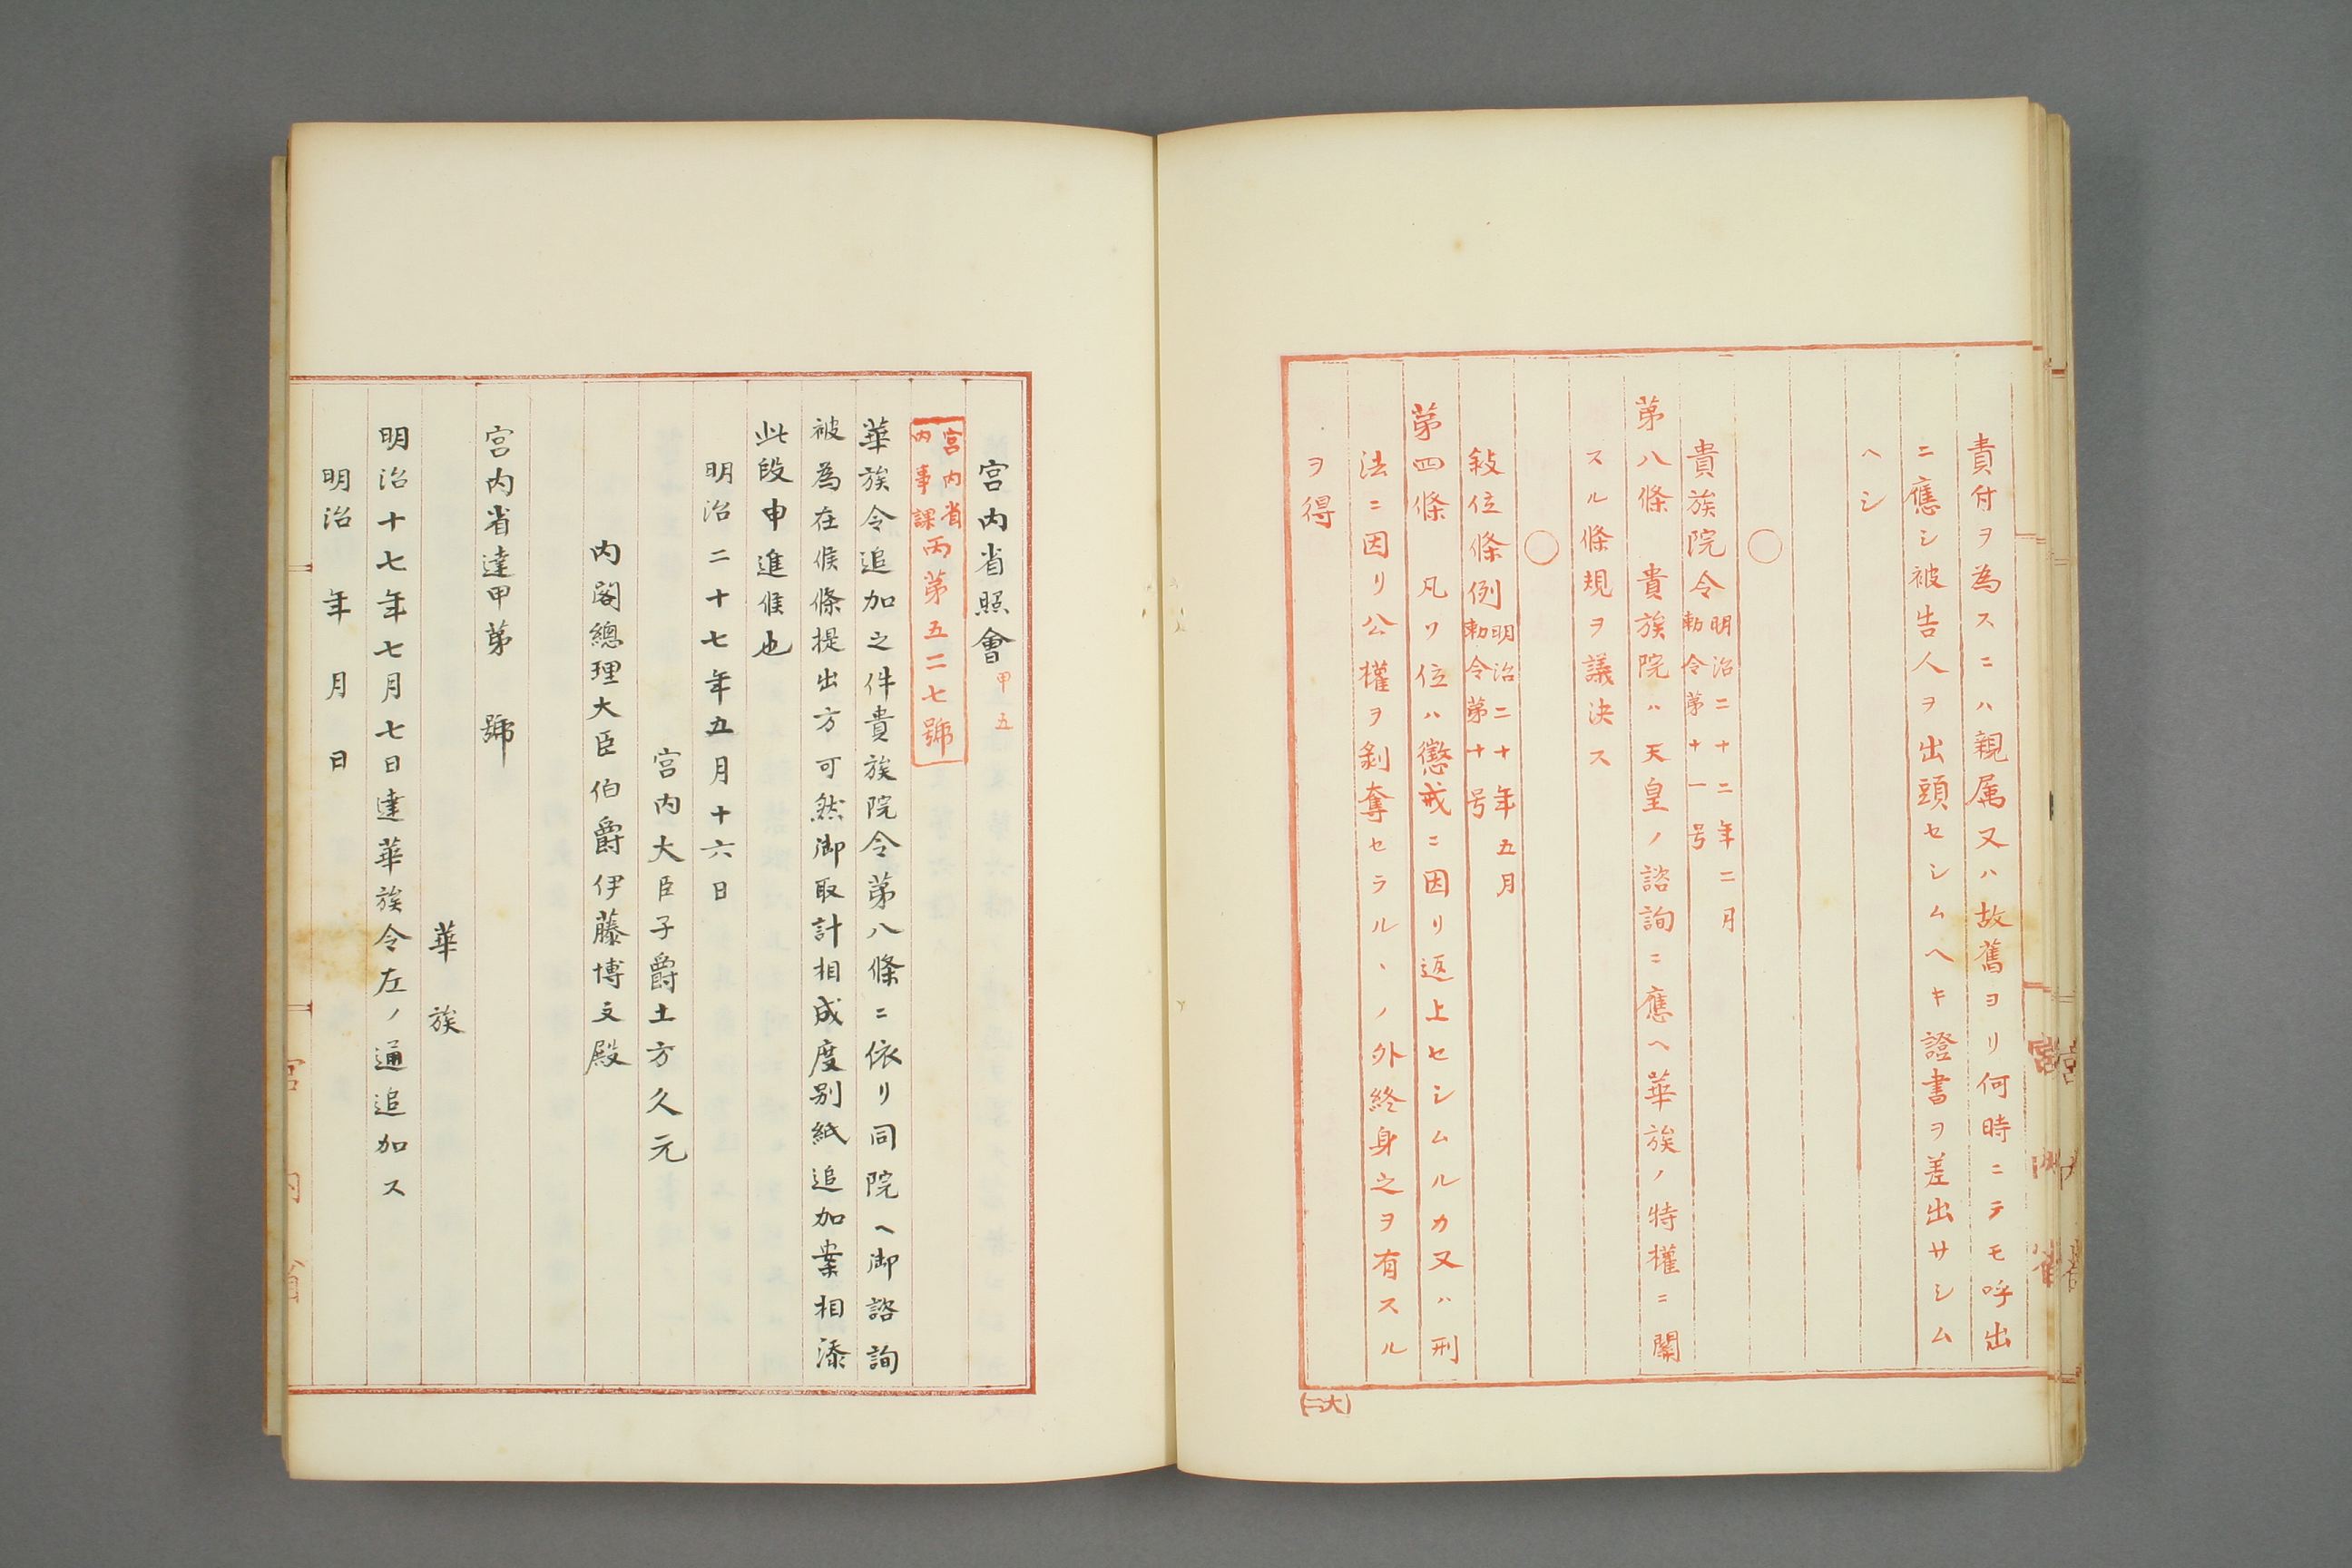 責付ヲ為スニハ親属又ハ故舊ヨリ何時ニテモ呼出
ニ應シ被告人ヲ出頭セシムヘキ證書ヲ差出サシム
ヘシ
○
貴族院令明治二十二年二月
勅令第十一号
第八條　貴族院ハ天皇ノ諮詢ニ應ヘ華族ノ特權ニ關
スル條規ヲ議決ス
○
敍位條例明治二十年五月
勅令第十号
第四條　凡ソ位ハ懲戒ニ因リ返上セシムルカ又ハ刑
法ニ因リ公權ヲ剝奪セラルヽノ外終身之ヲ有スル
ヲ得
宮内省照會甲五
宮内省
内事課丙第五二七號
華族令追加之件貴族院令第八條ニ依リ同院ヘ御諮詢
被為在候條提出方可然御取計相成度別紙追加案相添
此段申進候也
明治二十七年五月十六日
宮内大臣子爵土方久元
内閣總理大臣伯爵伊藤博文殿
宮内省達甲第　號
華族
明治十七年七月七日達華族令左ノ通追加ス
明治　年　月　日
宮内省